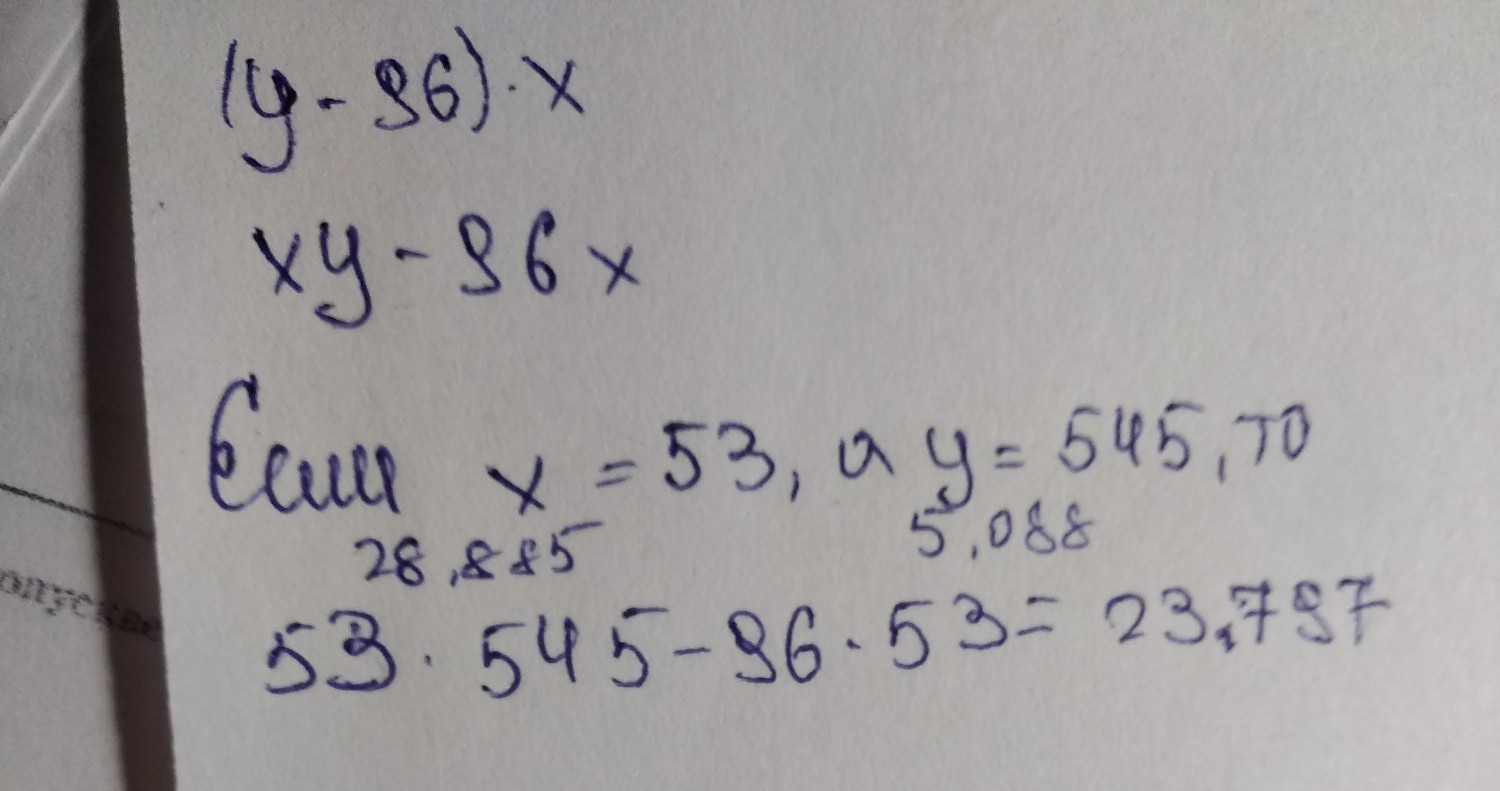 (y - 96) · x
xy - 96x
Если x = 53, а y = 545, то
28,885 5,088
53 · 545 - 96 · 53 = 23,797